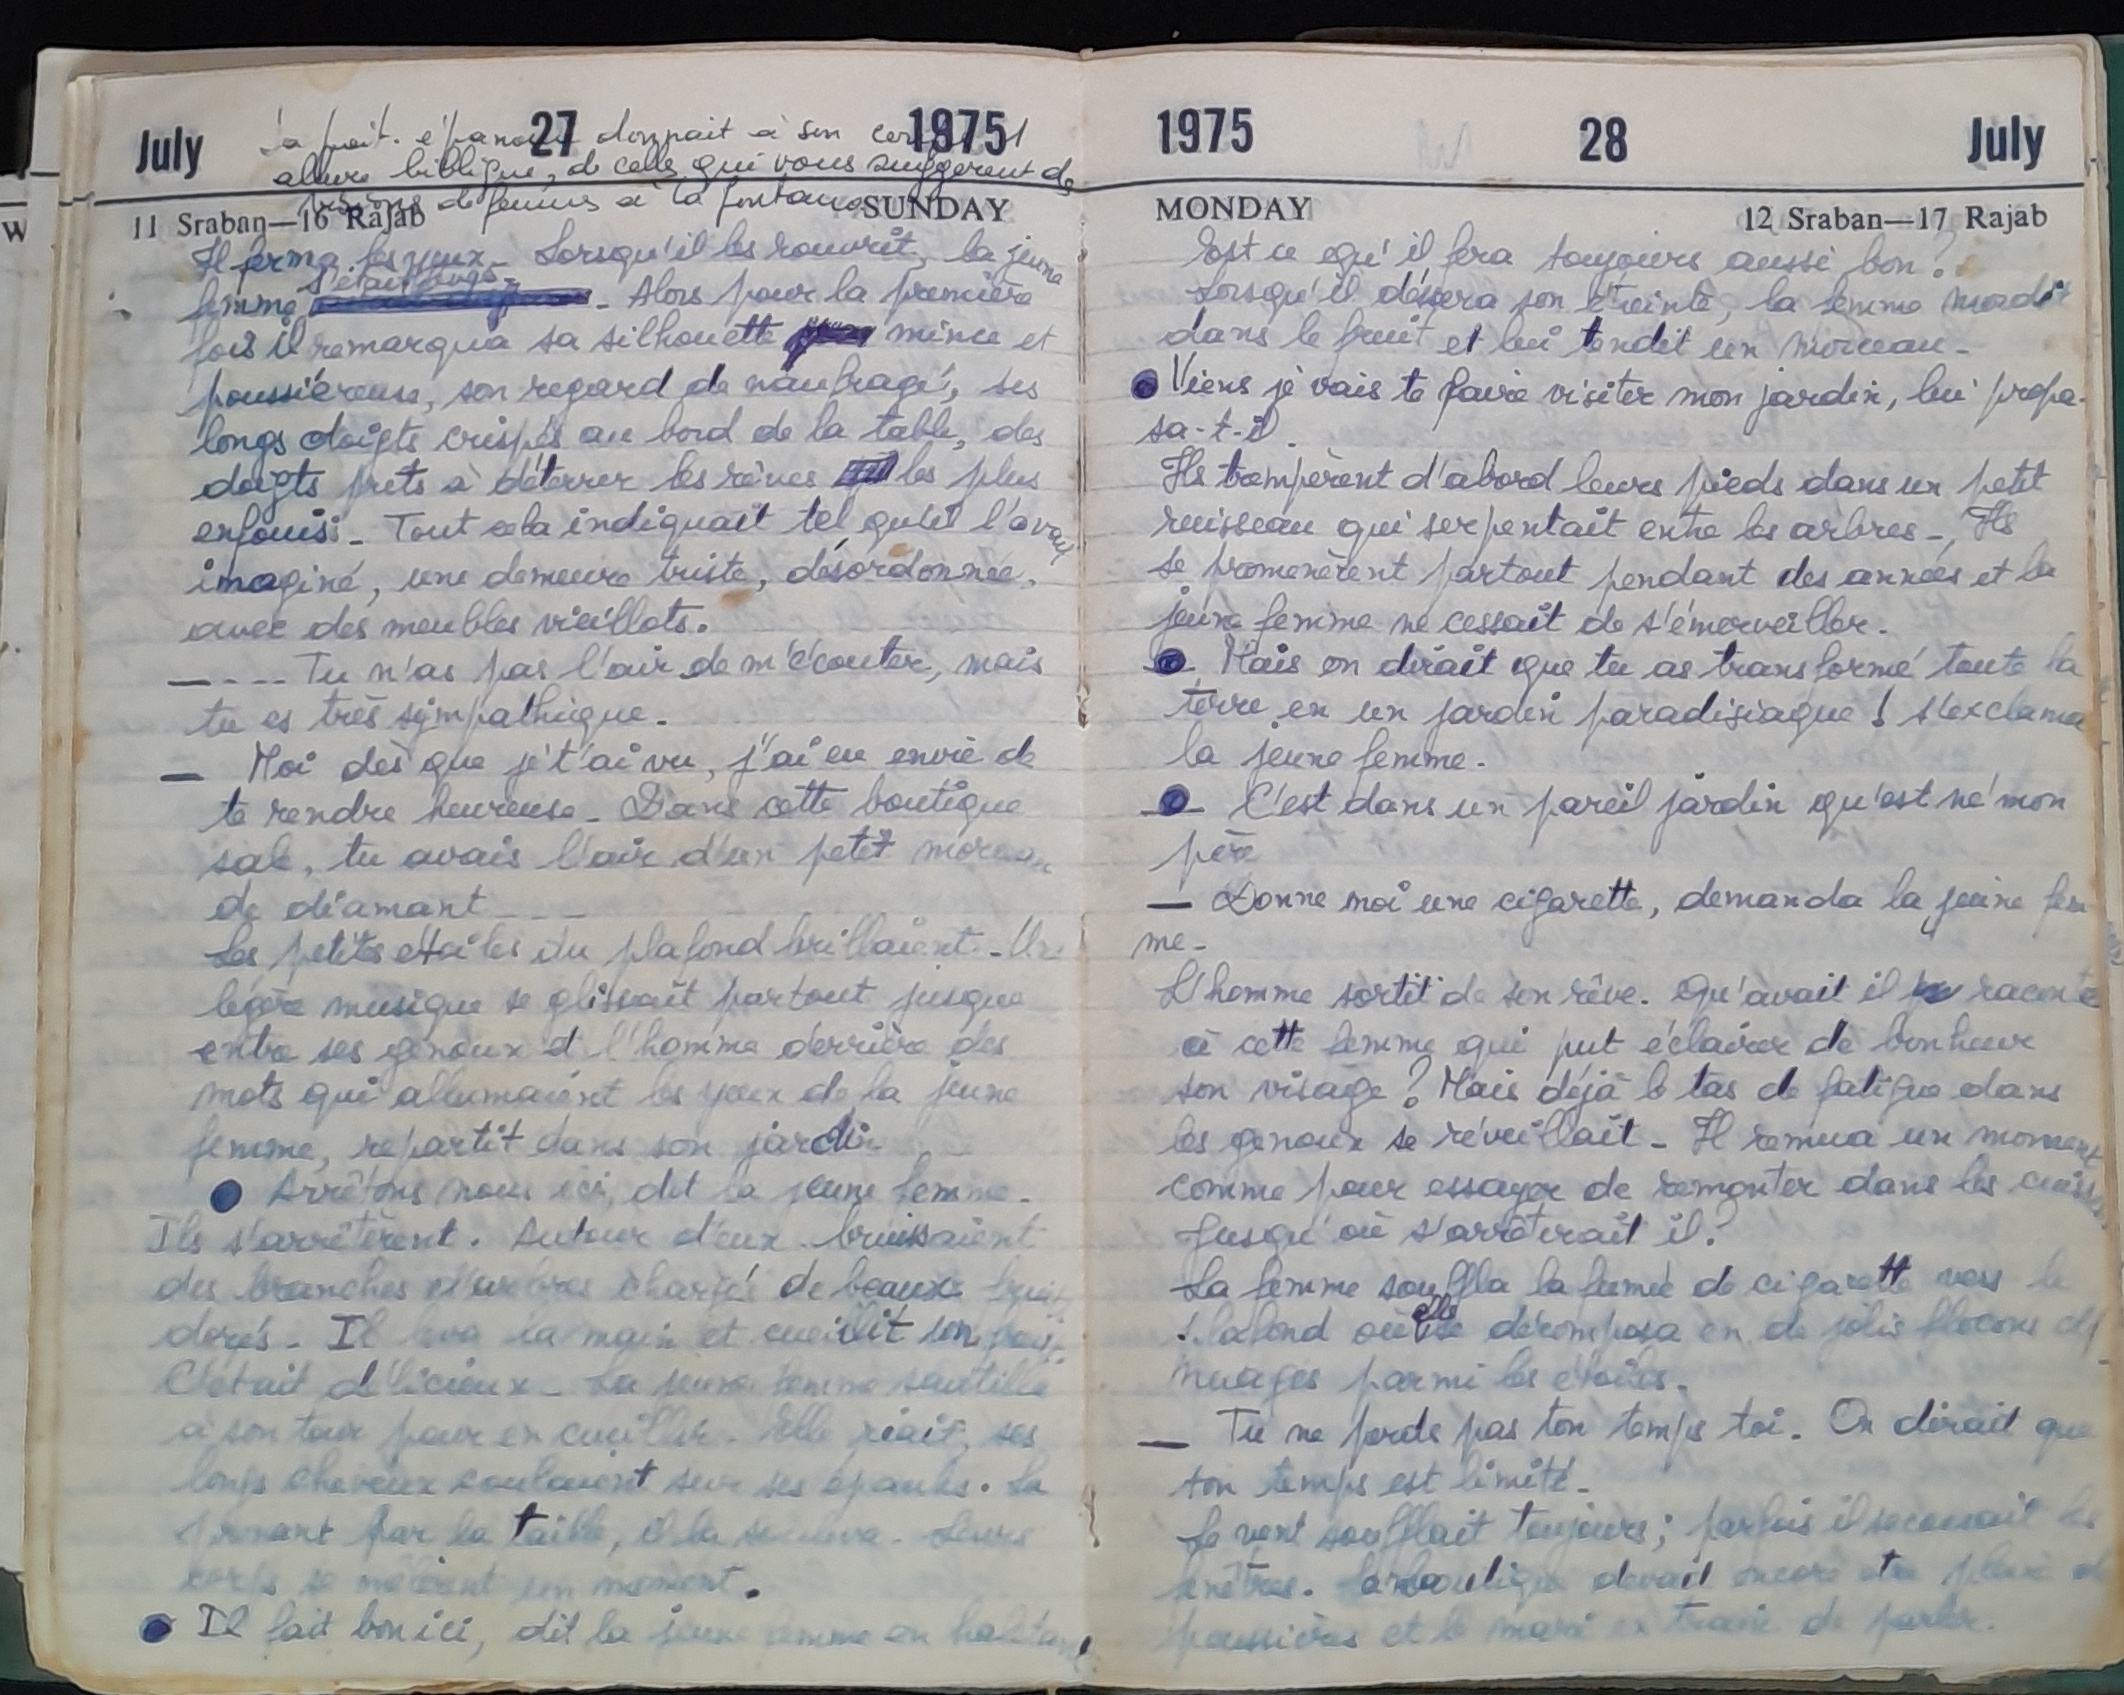 July 27 1975
épanoui donnait à son
allure biblique, de celle qui vous suggèrent de
visions de femmes à la fontaine
11 Sraban—16 Rajab SUNDAY
Il ferma les yeux - Lorsqu'il les rouvrit, la jeune
s'était
femme - Alors pour la première
fois il remarqua sa silhouette mince et
poussiéreuse, son regard de naufragé, ses
longs doigts crispés au bord de la table, des
doigts prets à déterrer les rêves les plus
enfouis - Tout cela indiquait tel qu'il l'avait
imaginé, une demeure triste, désordonnée,
avec des meubles vieillots.
---- Tu n'as pas l'air de m'écouter, mais
tu es très sympathique.
— Moi dès que je t'ai vu, j'ai eu envie de
te rendre heureuse - Dans cette boutique
sale, tu avais l'air d'un petit morceau
de diamant ---
Les petites étoiles du plafond brillaient - Une
légère musique se glissait partout jusque
entre ses genoux et l'homme derrière des
mots qui allumaient les yeux de la jeune
femme, repartit dans son jardin
● Arrêtons nous ici, dit la jeune femme -
Ils s'arrêtèrent. Autour d'eux bruissaient
des branches d'arbres chargés de beaux fruits
dorés - Il leva la main et cueillit son fruit
C'était délicieux - La jeune femme sautilla
à son tour pour en cueillir. Elle riait, ses
longs cheveux coulaient sur ses épaules. La
prenant par la taille, il la souleva - Leurs
corps se mêlèrent un moment.
● Il fait bon ici, dit la jeune femme en haletant
1975 28 July
MONDAY 12 Sraban—17 Rajab
Est ce qu'il fera toujours aussi bon?
Lorsqu'il désserra son étreinte, la femme mordit
dans le fruit et lui tendit un morceau -
● Viens je vais te faire visiter mon jardin, lui propo-
sa-t-il.
Ils trempèrent d'abord leurs pieds dans un petit
ruisseau qui serpentait entre les arbres -, Ils
se promenèrent partout pendant des années et la
jeune femme ne cessait de s'émerveiller.
● Mais on dirait que tu as transformé toute la
terre en un jardin paradisiaque ! s'exclama
la jeune femme.
● C'est dans un pareil jardin qu'est né mon
père
— Donne moi une cigarette, demanda la jeune fem
me -
L'homme sortit de son rêve. Qu'avait il raconté
à cette femme qui put éclairer de bonheur
son visage ? Mais déjà le tas de fatigue dans
les genoux se réveillait - Il remua un moment
comme pour essayer de remonter dans les cuisses
Jusqu'où s'arrêterait il ?
La femme souffla la fumée de cigarette vers le
elle
plafond où se décomposa en de jolis flocons de
nuages parmi les étoiles.
— Tu ne perds pas ton temps toi. On dirait que
ton temps est limité -
Le vent soufflait toujours ; parfois il secouait les
fenêtres. La boutique devait encore etre pleine de
poussières et le mari en train de parler.